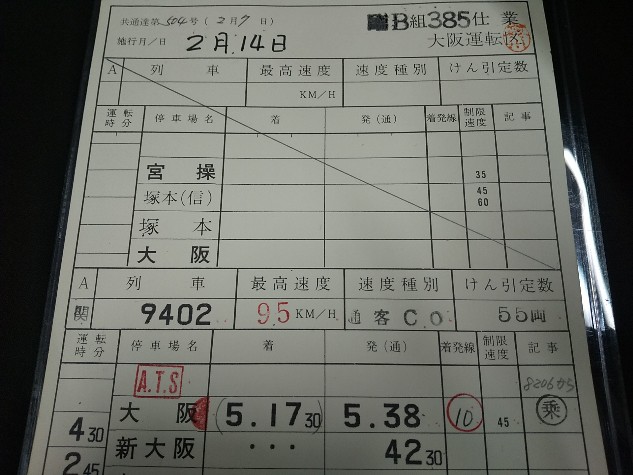 共通達第504号(2月7日)
B組 385仕業
施行月/日 2月14日
大阪運転区
A 列車 最高速度 速度種別 けん引定数
KM/H
運転時分 停車場名 着 発(通) 着発線 制限速度 記事
宮操 35
塚本(信) 45 60
塚本
大阪
A 列車 最高速度 速度種別 けん引定数
関 9402 95 KM/H 通客C0 55両
運転時分 停車場名 着 発(通) 着発線 制限速度 記事
A.T.S 8206から
大阪 (5.17 30) 5.38 10 45 乗
4 30
新大阪 ・・・ 42 30
2 45